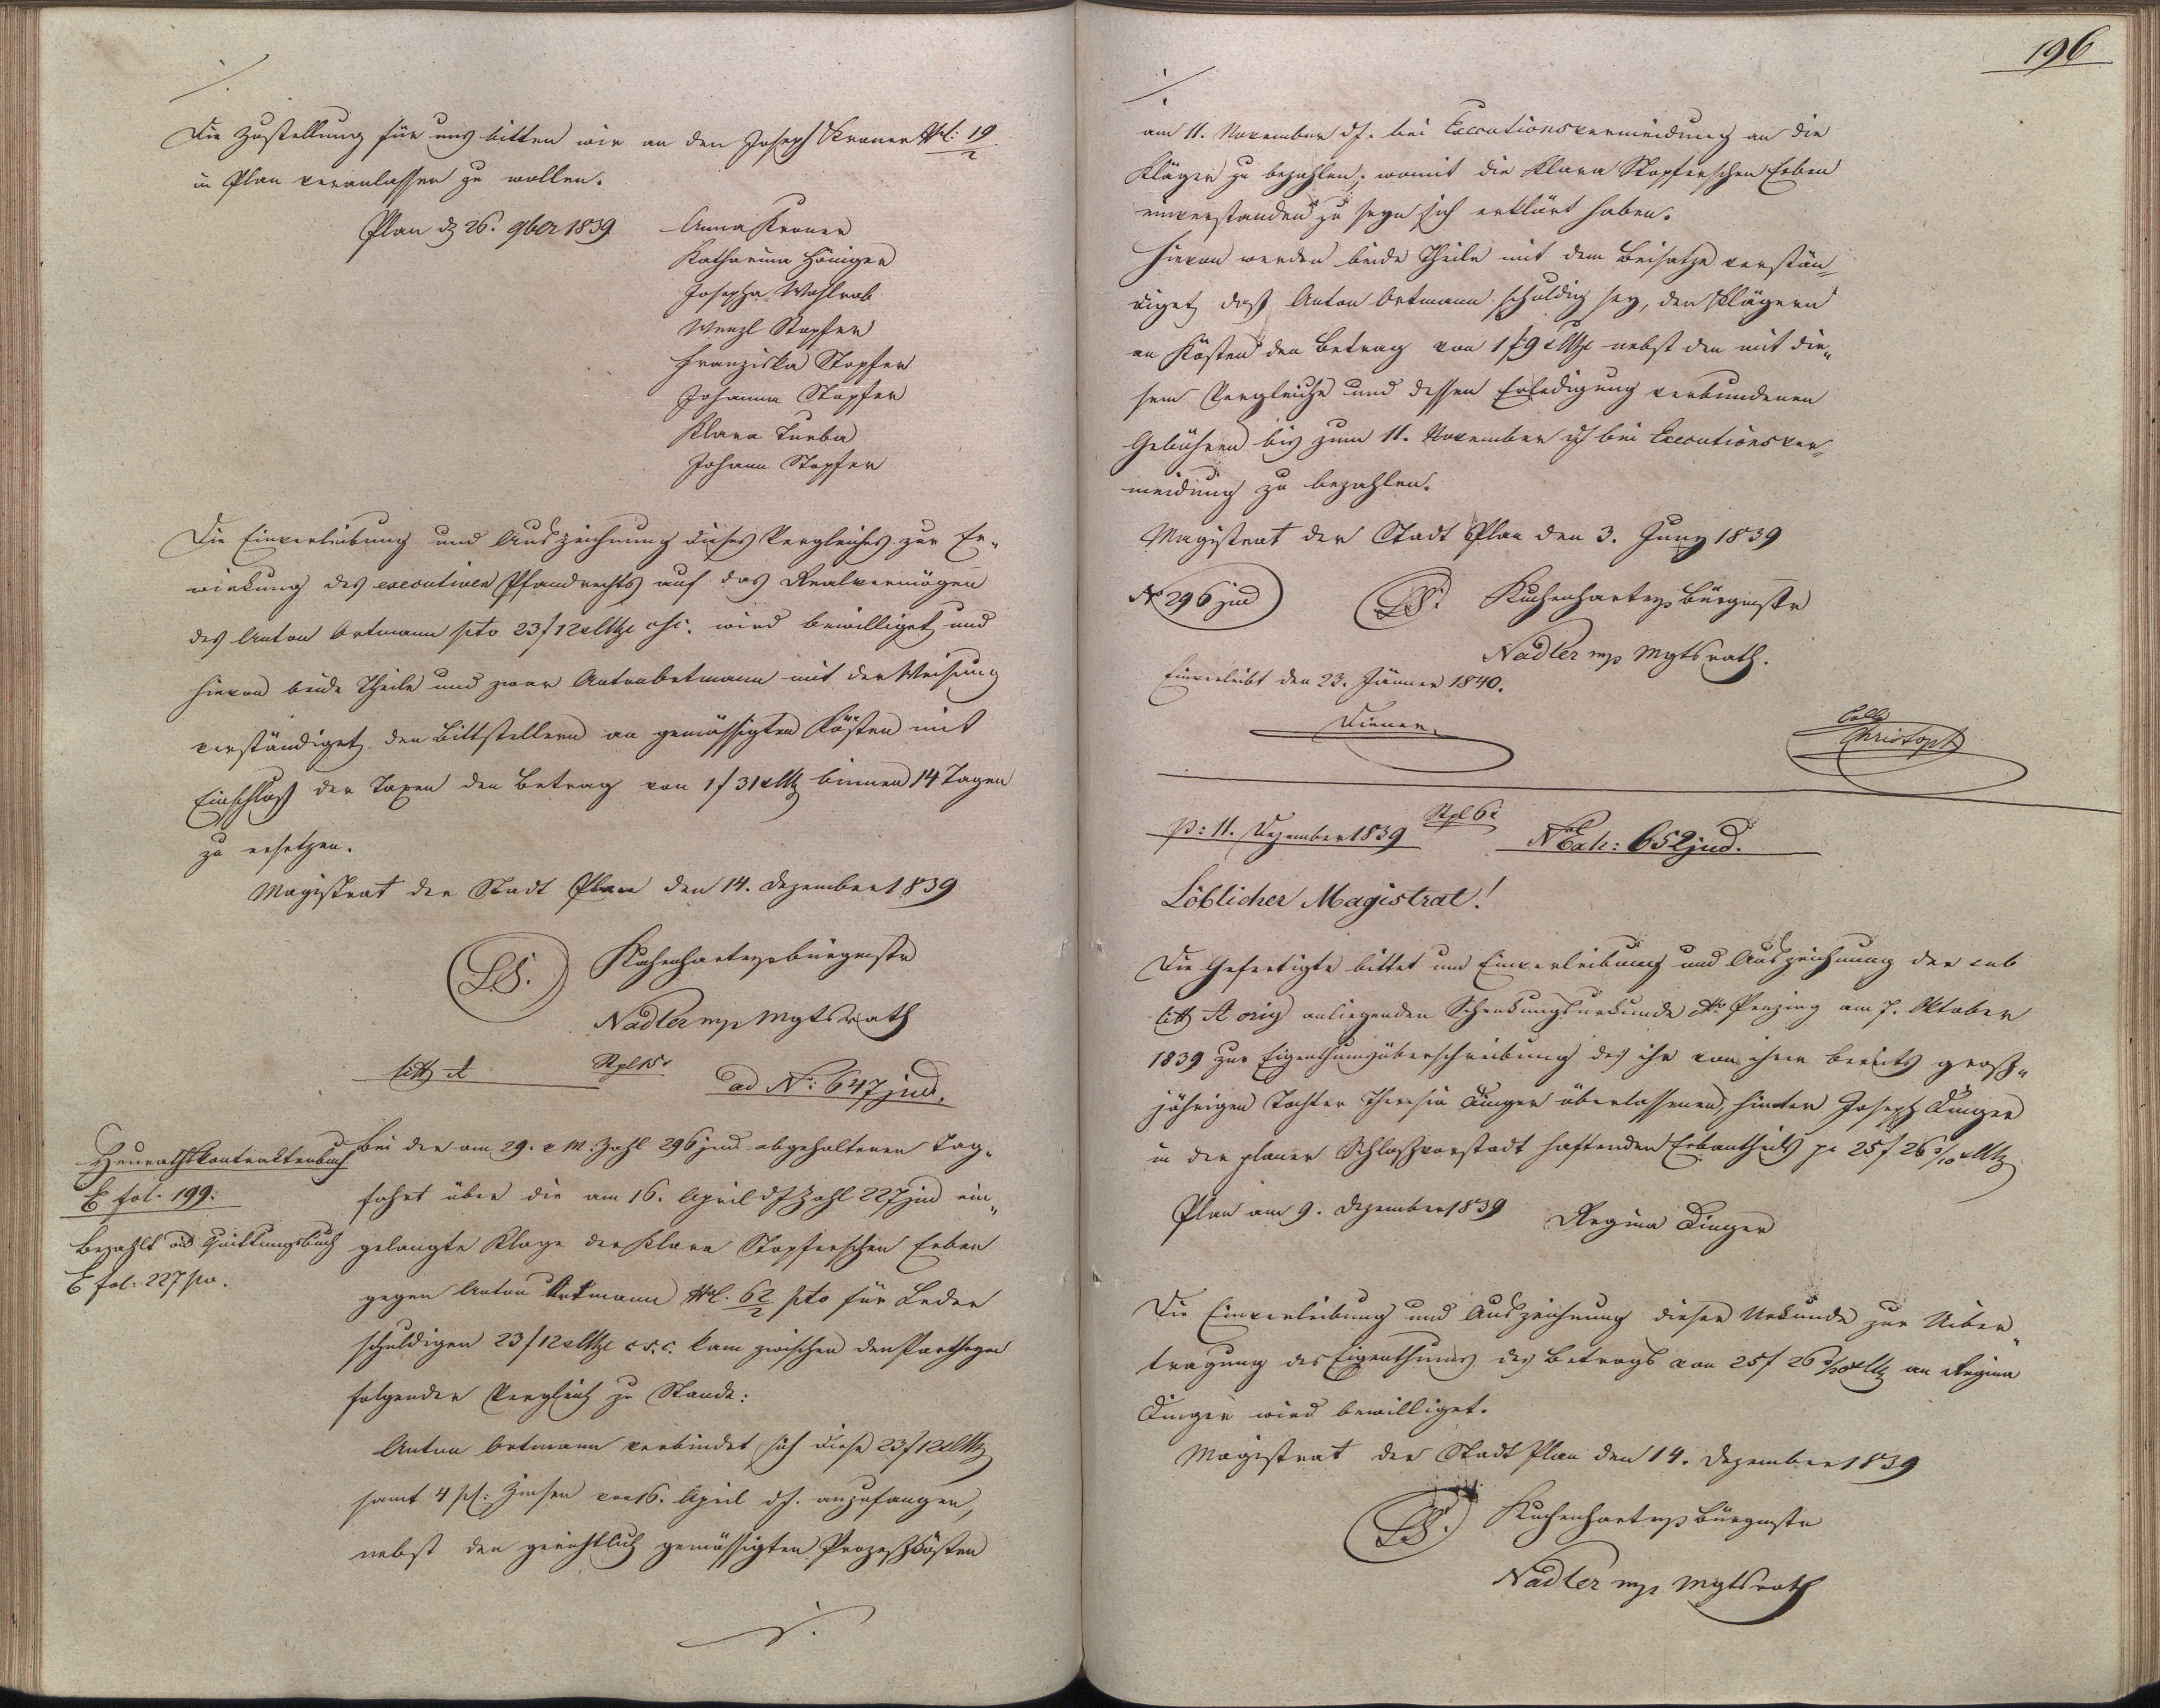 ./.
Die Zustellung für uns bitten wir an den Joseph Kraner Nl: 19/2
in Plan veranlassen zu wollen.
Plan d 26. 9ber 1839
Anna Kroner
Katharina Höniger
Josepha Wohlrab
Wenzl Stopfer
Franziska Stopfer
Johanna Stopfer
Klara Turba
Johann Stopfer
Die Einverleibung und Auszeichnung dieses Vergleiches zur Er-
wirkung des executiven Pfandrechts auf das Realvermögen
des Anton Ortmann pto 23 f 12 x CMze csc. wird bewilliget und
hievon beide Theile und zwar Anton Ortmann mit der Weisung
verständiget den Bittstellern an gemässigten Kösten mit
Einschluß der Taxen den Betrag von 1 f 31 x CMz binnen 14 Tagen
zu ersetzen.
Magistrat der Stadt Plan den 14. Dezember 1839
L.S. Kuchenhart mp Bürgmstr
Nadler mp Mgtsrath
litt A Stpl 15 x ad No: 647 jud.
Heurathskontraktenbuch
E fol. 199.
Bezahlt ad Quittungsbuch
E fol. 227 pw.
Bei der am 29. v M. Zahl 296 jud abgehaltenen Tag-
fahrt über die am 16. April dJ Zahl 227 jud ein-
gelangte Klage der Klara Stopferschen Erben
gegen Anton Ortmann Nl. 62/2 pto für Leder
schuldigen 23 f 12 x CMze c.s.c. kam zwischen den Partheyen
folgender Vergleich zu Stande:
Anton Ortmann verbindet sich diese 23 f 12 x CMz
samt 4 pC: Zinsen von 16. April dJ. anzufangen,
nebst den gerichtlich gemässigten Prozeßkösten
./.
196
./.
am 11. November dJ. bei Executionsvermeidung an die
Kläger zu bezahlen; womit die Klara Stopferschen Erben
einverstanden zu seyn sich erklärt haben.
Hievon werden beide Theile mit dem Beisatze verstän-
diget, daß Anton Ortmann schuldig sey, den Klägern
an Kösten den Betrag von 1 f 9 x CMze nebst den mit die-
sem Vergleiche und dessen Erledigung verbundenen
Gebühren bis zum 11. November dJ bei Executionsver-
meidung zu bezahlen.
Magistrat der Stadt Plan den 3. Juny 1839
No 296 jud L.S. Kuchenhart mp Bürgmstr
Nadler mp Mgtsrath.
Einverleibt den 23. Jänner 1840.
Diener Coll
Christoph
p: 11. Dezember 1839 Stpl 6 x N Exh: 652 jud.
Löblicher Magistrat!
Die Gefertigte bittet um Einverleibung und Auszeichnung der sub
litt A orig anliegenden Schenkungsurkunde do Penzing am 7. Oktober
1839 zur Eigenthumsüberschreibung des ihr von ihrer bereits groß-
jährigen Tochter Theresia Dinger überlassenen, hinter Joseph Dinger
in der planer Schloßvorstadt haftenden Erbantheils pr 25 f 26 3/10 x CMz
Plan am 9. Dezember 1839 Regina Dinger
Die Einverleibung und Auszeichnung dieser Urkunde zur Uiber-
tragung des Eigenthums des Betrags von 25 f 26 3/10 x CMz an Regina
Dinger wird bewilliget.
Magistrat der Stadt Plan den 14. Dezember 1839
L.S. Kuchenhart mp Bürgmstr
Nadler mp Mgtsrath